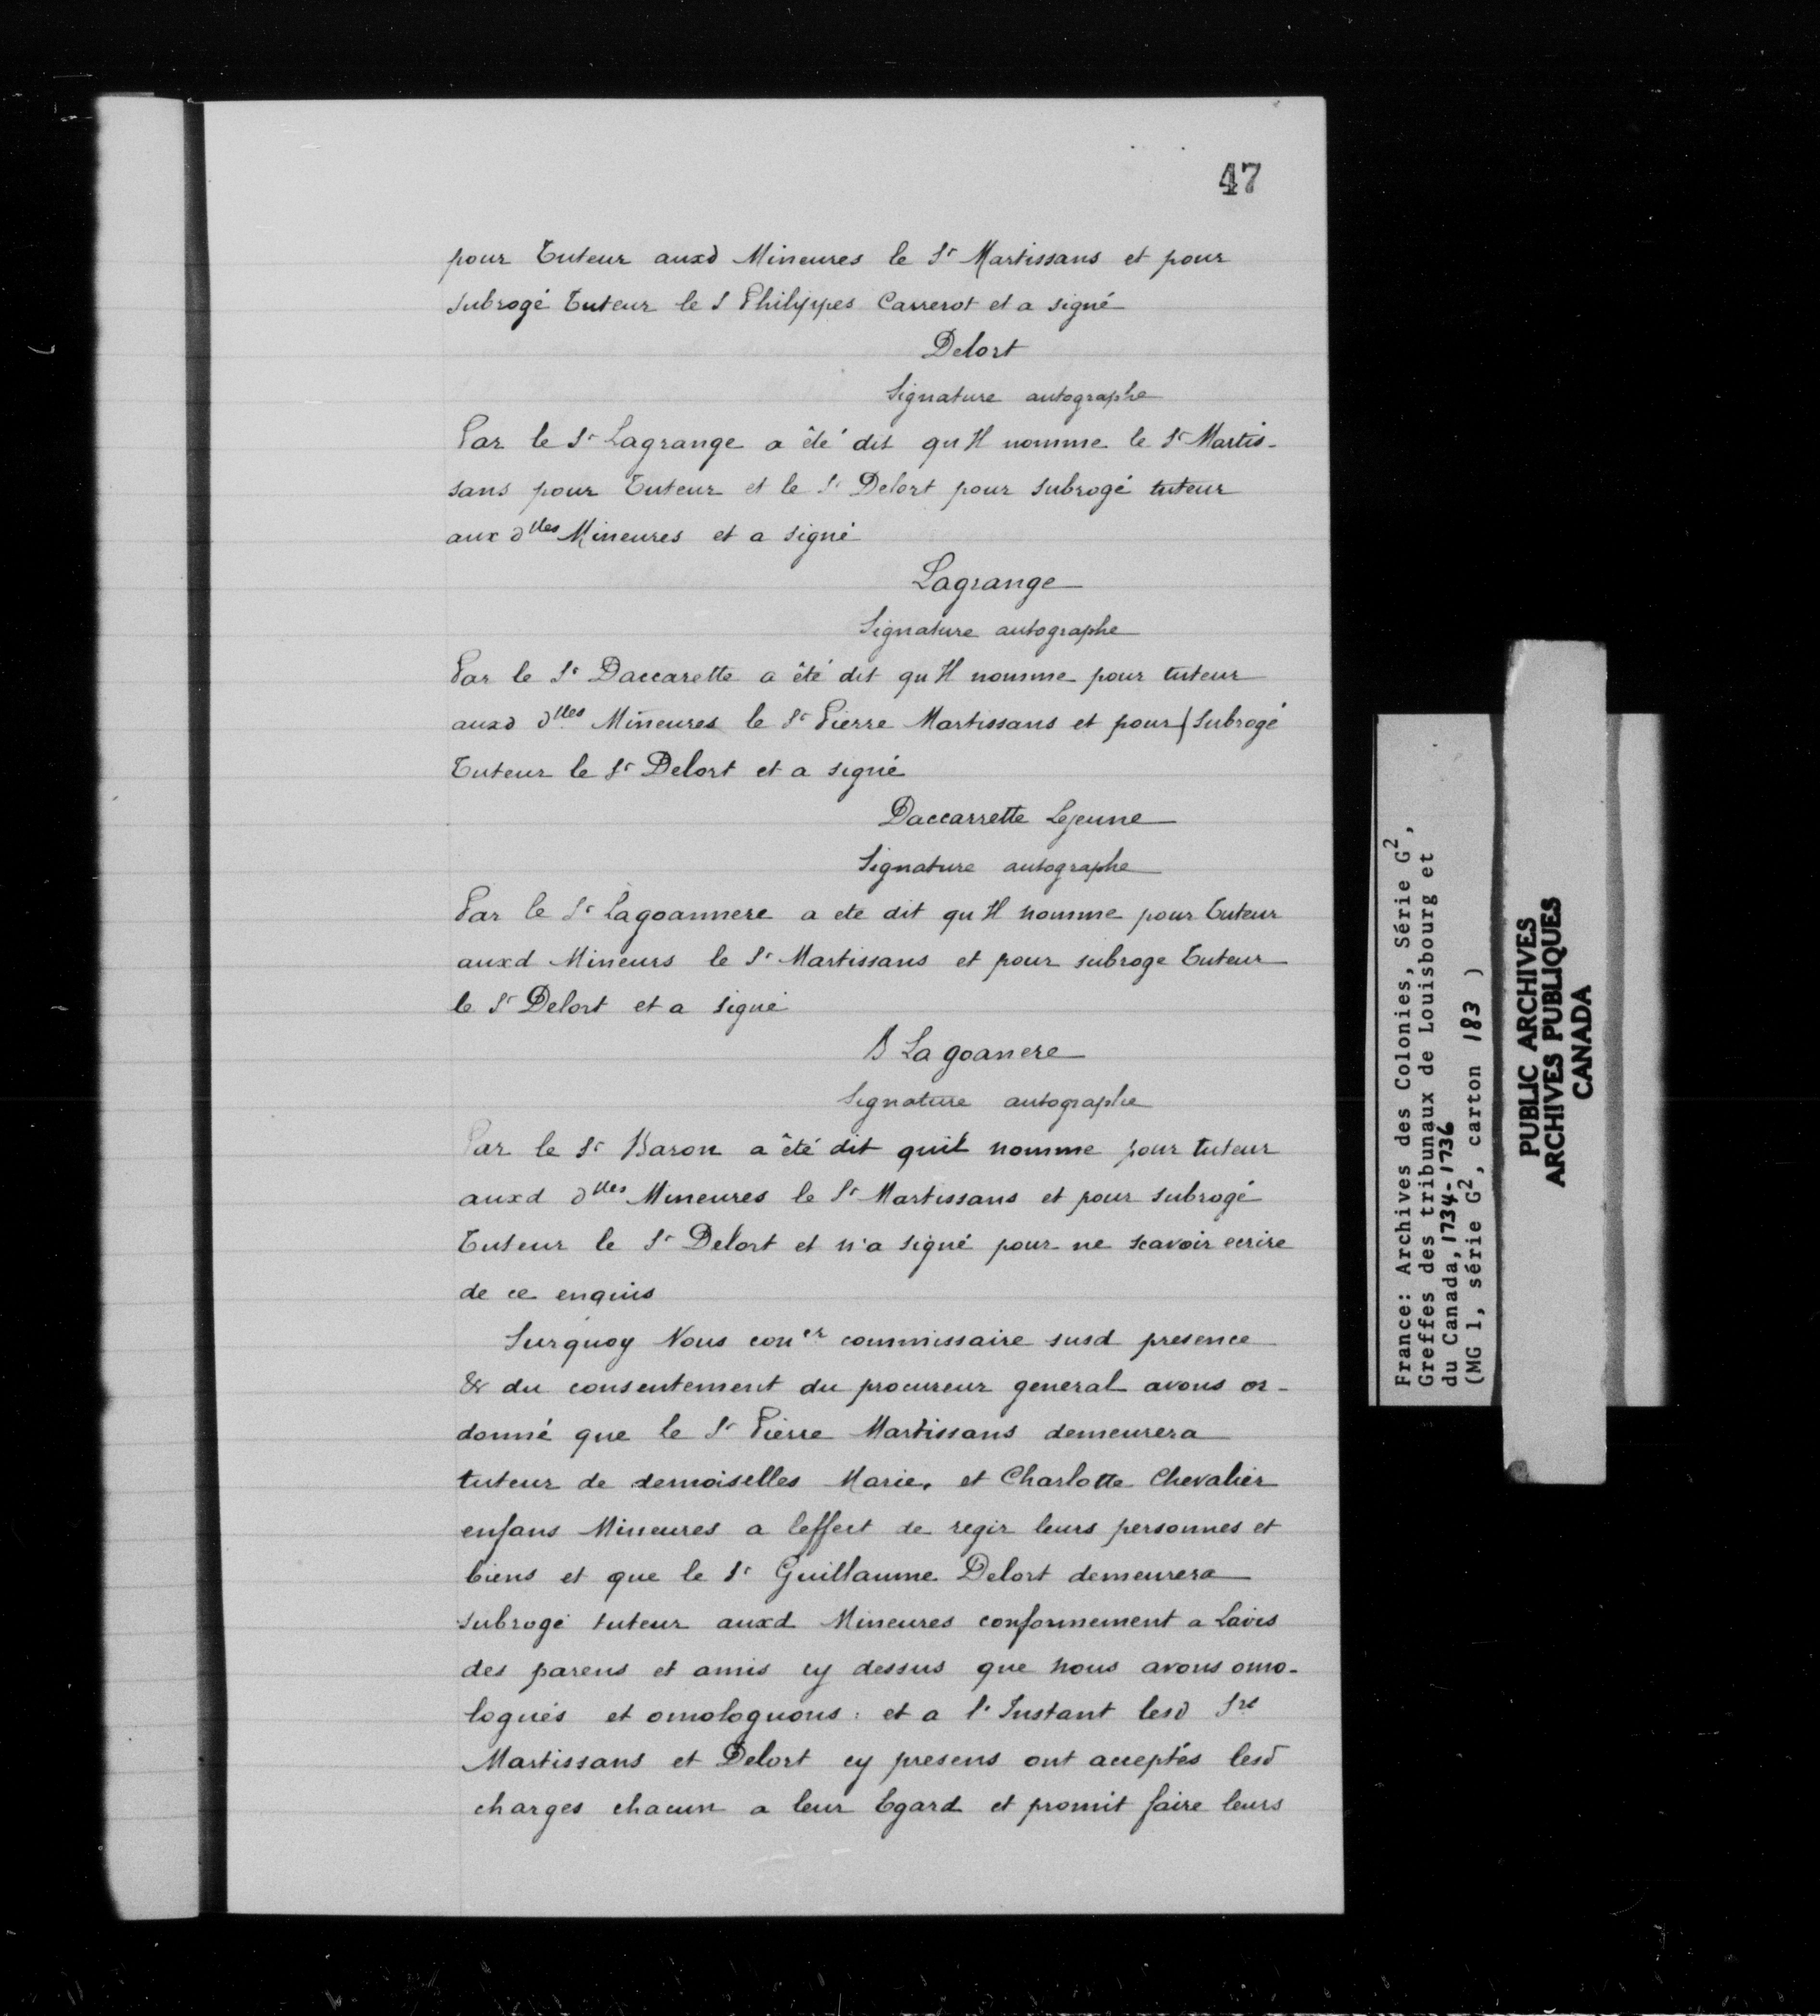 47
pour Tuteur auxd Mineures le Sr Martissans et pour
subrogé Tuteur le S Philippes Carrerot et a signé
Delort
Signature autographe
Par le Sr Lagrange a êté dit qu Il nomme le Sr Martis-
sans pour Tuteur et le Sr Delort pour subrogé tuteur
aux dlles Mineures et a signé
Lagrange
Signature autographe
Par le Sr Daccarette a êté dit qu Il nomme pour tuteur
auxd dlles Mineures le Sr Pierre Martissans et pour Subrogé
Tuteur le Sr Delort et a signé
Daccarrette Lejeune
Signature autographe
Par le Sr Lagoannere a ete dit qu Il nomme pour Tuteur
auxd Mineurs le Sr Martissans et pour subroge Tuteur
le Sr Delort et a signé
B Lagoanere
Signature autographe
Par le Sr Baron a êté dit quil nomme pour tuteur
auxd dlles Mineures le Sr Martissans et pour subrogé
Tuteur le Sr Delort et n'a signé pour ne scavoir ecrire
de ce enquis
Surquoy Nous coner commissaire susd presence
& du consentement du procureur general avons or-
donné que le Sr Pierre Martissans demeurera
tuteur de demoiselles Marie, et Charlotte Chevalier
enfans Mineures a leffect de regir leurs personnes et
biens et que le Sr Guillaume Delort demeurera
subrogé tuteur auxd Mineures conformement a Lavis
des parens et amis cy dessus que nous avons omo-
logués et omologuons : et a l'Instant lesd Srs
Martissans et Delort cy presens ont acceptés lesd
charges chacun a leur Egard et promit faire leurs
France: Archives des Colonies, Série G2,
Greffes des tribunaux de Louisbourg et
du Canada, 1734-1736
(MG 1, série G2, carton 183 )
PUBLIC ARCHIVES
ARCHIVES PUBLIQUES
CANADA